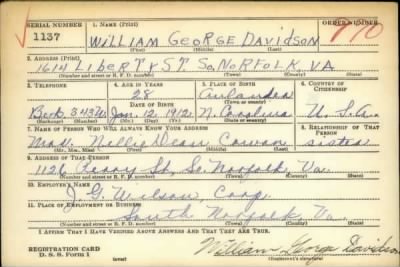 SERIAL NUMBER 1. NAME (Print) ORDER NUMBER
1137 WILLIAM GEORGE DAVIDSON
(First) (Middle) (Last)
2. ADDRESS (Print)
1614 LIBERTY ST. SO. NORFOLK, VA
(Number and street or R. F. D. number) (Town) (County) (State)
3. TELEPHONE 4. AGE IN YEARS 5. PLACE OF BIRTH 6. COUNTRY OF CITIZENSHIP
28
DATE OF BIRTH (Town or county)
Jan. 12, 1912 N. Carolina U.S.A.
(Exchange) (Number) (Mo.) (Day) (Yr.) (State or country)
7. NAME OF PERSON WHO WILL ALWAYS KNOW YOUR ADDRESS 8. RELATIONSHIP OF THAT PERSON
Nellie Dean Cowan sister
(Mr., Mrs., Miss) (First) (Middle) (Last)
9. ADDRESS OF THAT PERSON
1126 St. So. Norfolk Va.
(Number and street or R. F. D. number) (Town) (County) (State)
10. EMPLOYER'S NAME
J. G. Wilson, Corp.
11. PLACE OF EMPLOYMENT OR BUSINESS
South Norfolk Va.
(Number and street or R. F. D. number) (Town) (County) (State)
I AFFIRM THAT I HAVE VERIFIED ABOVE ANSWERS AND THAT THEY ARE TRUE.
REGISTRATION CARD
D. S. S. Form 1 (over) William George Davidson
(Registrant's signature)